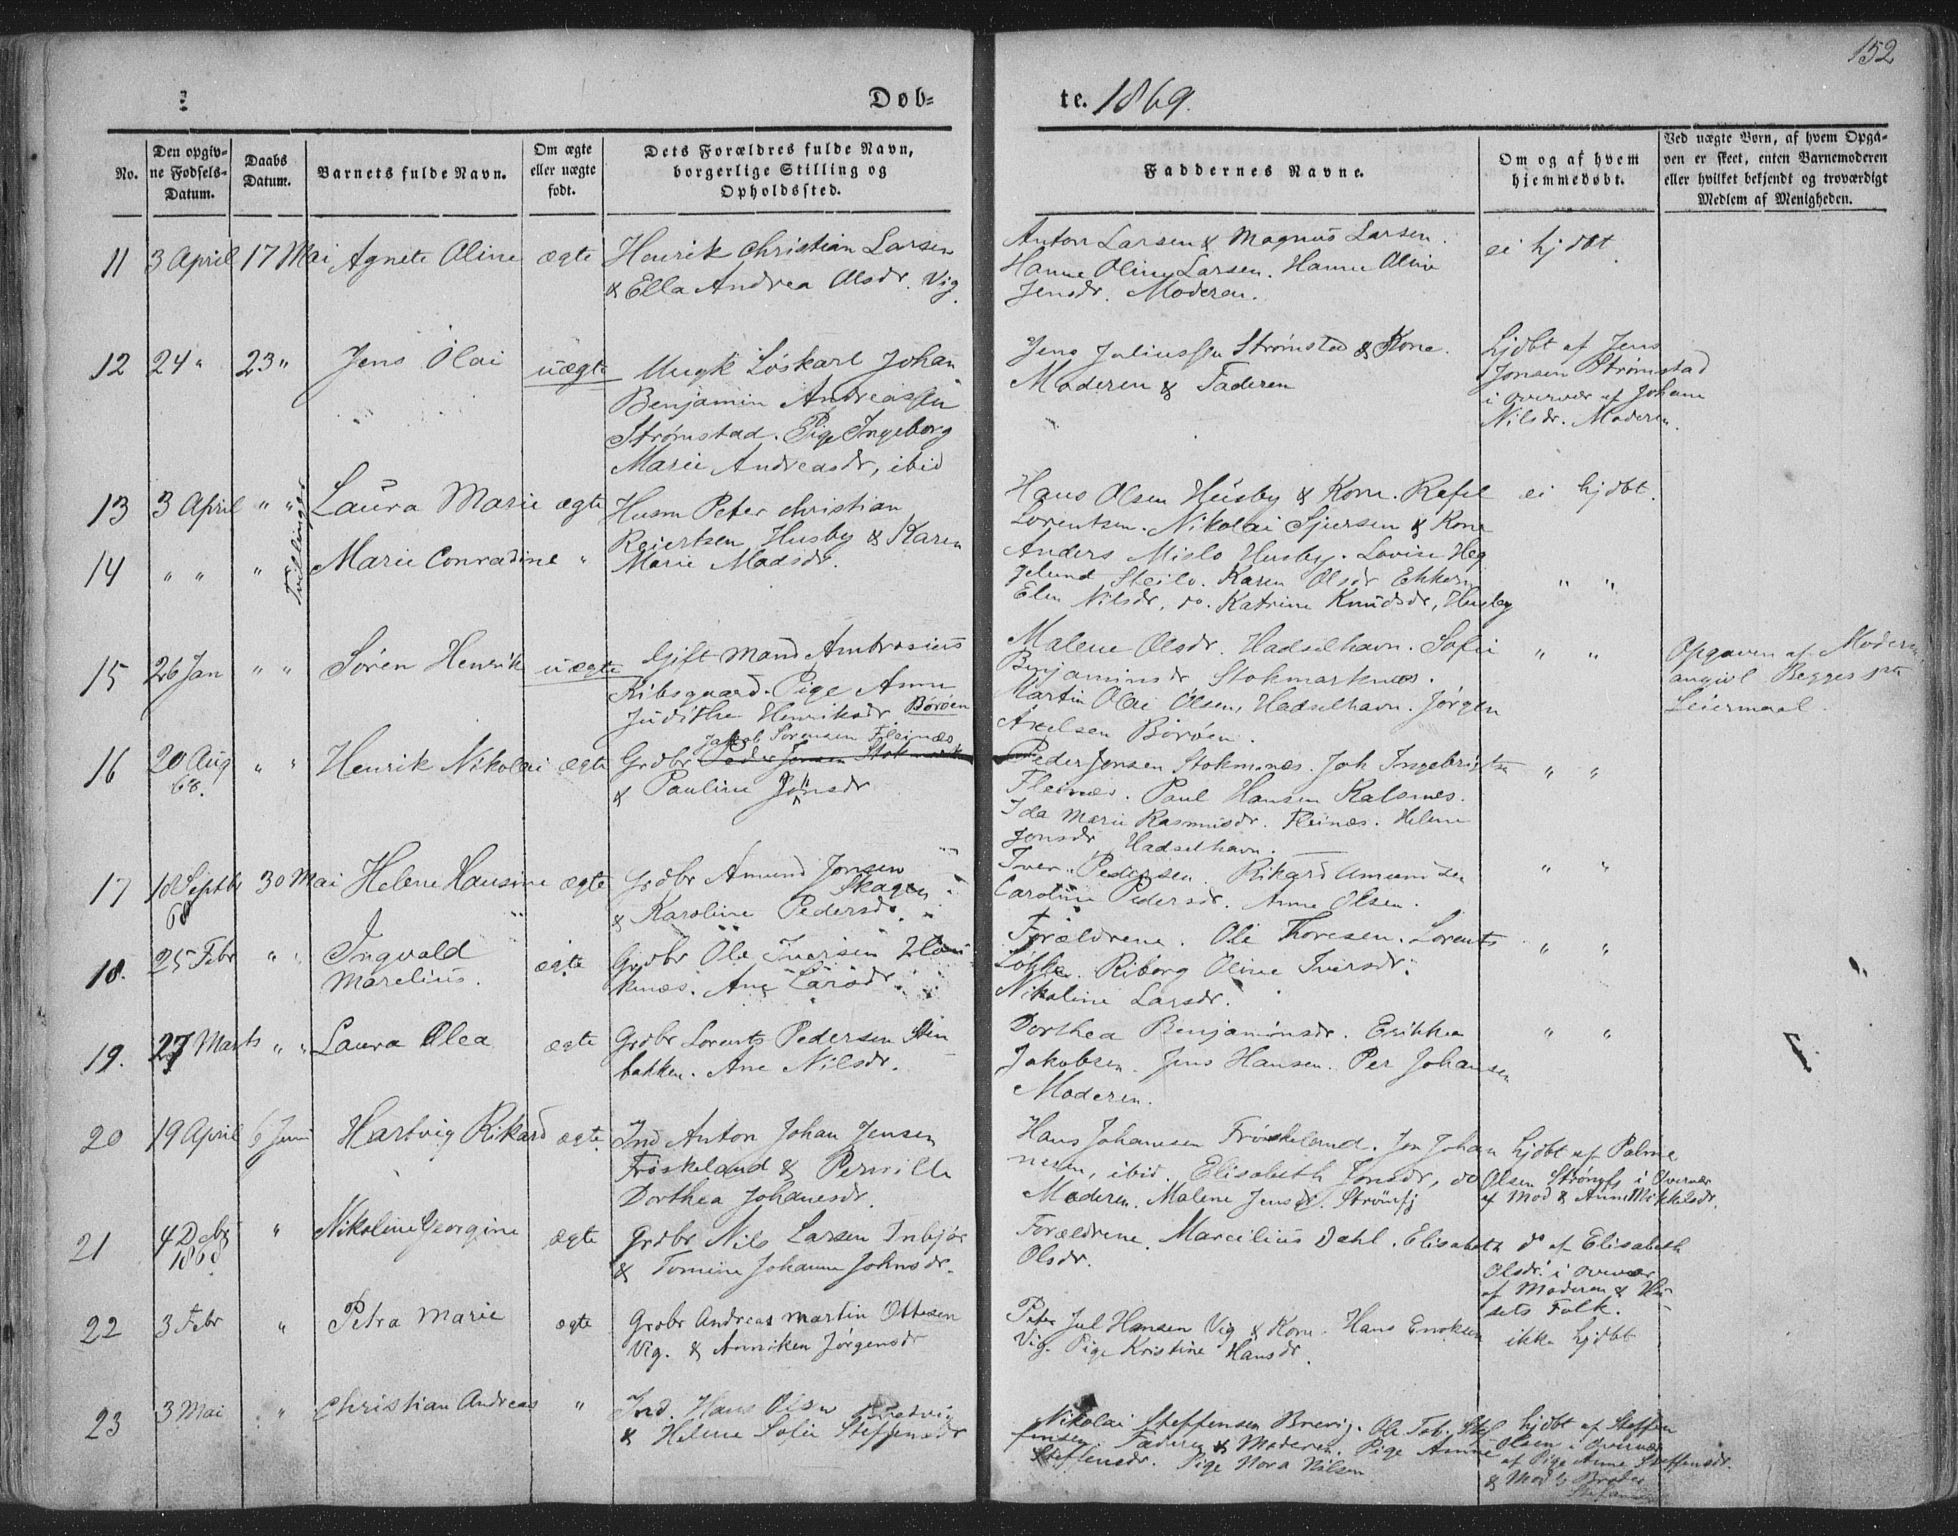 152
Døb-
te. 1869.
No.
Den opgiv-
ne Fødsels-
Datum.
Daabs
Datum.
Barnets fulde Navn.
Om ægte
eller uægte
født.
Dets Forældres fulde Navn,
borgerlige Stilling og
Opholdssted.
Faddernes Navne.
Om og af hvem
hjemmedøbt.
Ved uægte Børn, af hvem Opga-
ven er skeet, enten Barnemoderen
eller hvilket bekjendt og troværdigt
Medlem af Menigheden.
11 3 April 17 Mai Agnete Oline ægte
Henrik Christian Larsen
& Ella Andrea Olsdr. Vig.
Anton Larsen & Magnus Larsen.
Hanne Oline Larsen. Hanne Oline
Jensdr. Moderen.
ei hjdøt.
12 24 " 23 " Jens Olai uægte
Ungk Löskarl Johan
Benjamin Andreassen
Strømstad. Pige Ingeborg
Marie Andreasdr, ibid
Jens Juliussen Strømstad & Kone.
Moderen & Faderen
hjdbt af Jens
Jonsen Strømstad
i overvær af Johane
Nilsdr. Moderen.
13 3 April " " Laura Marie ægte
Tvillinger
Husm Peter Christian
Reiertsen Husby & Karen
Marie Madsdr.
Hans Olsen Husby & Kone. Rafel
Lorentsen. Nikolai Sjursen & Kone
ei hjdbt.
14 " " " Marie Conradine "
Anders Mislo Husby. Lovise Heg
gelund Steilo. Karen Olsdr Ekkern
Elen Nilsdr, do. Katrine Knudsdr, Husby
" "
15 26 Jan " " Søren Henrik uægte
Gift Mand Ambrosius
Ribsgaard. Pige Anne
Judithe Henriksdr. Børøen
Malene Olsdr. Hadselhavn. Sofie
Benjaminsdr Stokmarknæs.
Martin Olai Olsen, Hadselhavn. Jørgen
Axelsen Börøen.
" "
Opgaven af Moderen
angivl. Begges
Leiermaal.
16 20 Aug 68. " " Henrik Nikolai ægte
Jakob Sörensen Fleinæs
Grdbr Peder Jonsen Stokmark
& Pauline Jonsdr
Peder Jonsen Stokmnæs. Joh Ingebrigts
Fleinæs. Paul Hansen Kalsnes.
Ida Marie Rasmusdr. Fleinæs. Helene
Jonsdr, Hadselhavn.
" "
17 18 Septbr 68 30 Mai Helene Hansine ægte
Grdbr Amund Jonsen
Skagen
& Karoline Pedersdr.
Iver Pedersen. Rikard Amundsen
Caroline Pedersdr. Anne Olsen.
" "
18. 25 Febr " " Ingvald
Marelius. ægte
Grdbr Ole Iversen
knæs. Ane Larsdr.
Forældrene. Ole Thoresen. Lorents
Løkke. Riborg Oline Iversdr.
Nikoline Larsdr.
" "
19. 27 Marts " " Laura Olea ægte
Grdbr Lorents Pedersen Sten
bakken. Ane Nilsdr.
Dorthea Benjaminsdr. Erikka
Jakobsen. Jens Hansen. Per Johansen
Moderen.
" "
20 19 April 6 Juni Hartvig Rikard ægte
Ind Anton Johan Jensen
Fröskeland & Pernille
Dorthea Johanesdr.
Hans Johannesen Fröskeland. Jon Johan
nesen, ibid. Elisabeth Jonsdr, do
Moderen. Malene Jensdr. Strönsfj
hjdbt af Paline
Olsen Strönsfj i Overvær
af Mod & Anne Mikkelsdr.
21 4 Decbr 1868 " Nikoline Georgine ægte
Grdbr Nils Larsen Indbjör
& Tomine Johanne Johnsdr.
Forældrene. Marcilius Dahl. Elisabeth
Olsdr.
do af Elisabeth
Olsdr. i Overvær
af Moderen & Hu-
sets Folk.
22 3 Febr " Petra Marie ægte
Grdbr Andreas Martin Ottesen
Vig. & Anniken Jørgensdr
Peter Jul Hansen Vig & Kone. Hans Enoksen
Vig. Pige Kristine Hansdr.
ikke hjdbt
23 3 Mai " Christian Andreas "
Ind. Hans Olsen
& Helene Sofie Steffensdr
Nikolai Steffensen Brevig. Ole Tob. Stef
fensen. Faderen & Moderen. Pige Anne
Steffensdr. Pige Nora Nilsen
hjdbt af Steffen
Olsen i overvær
af Pige Anne Steffensdr.
& Mod's Broder